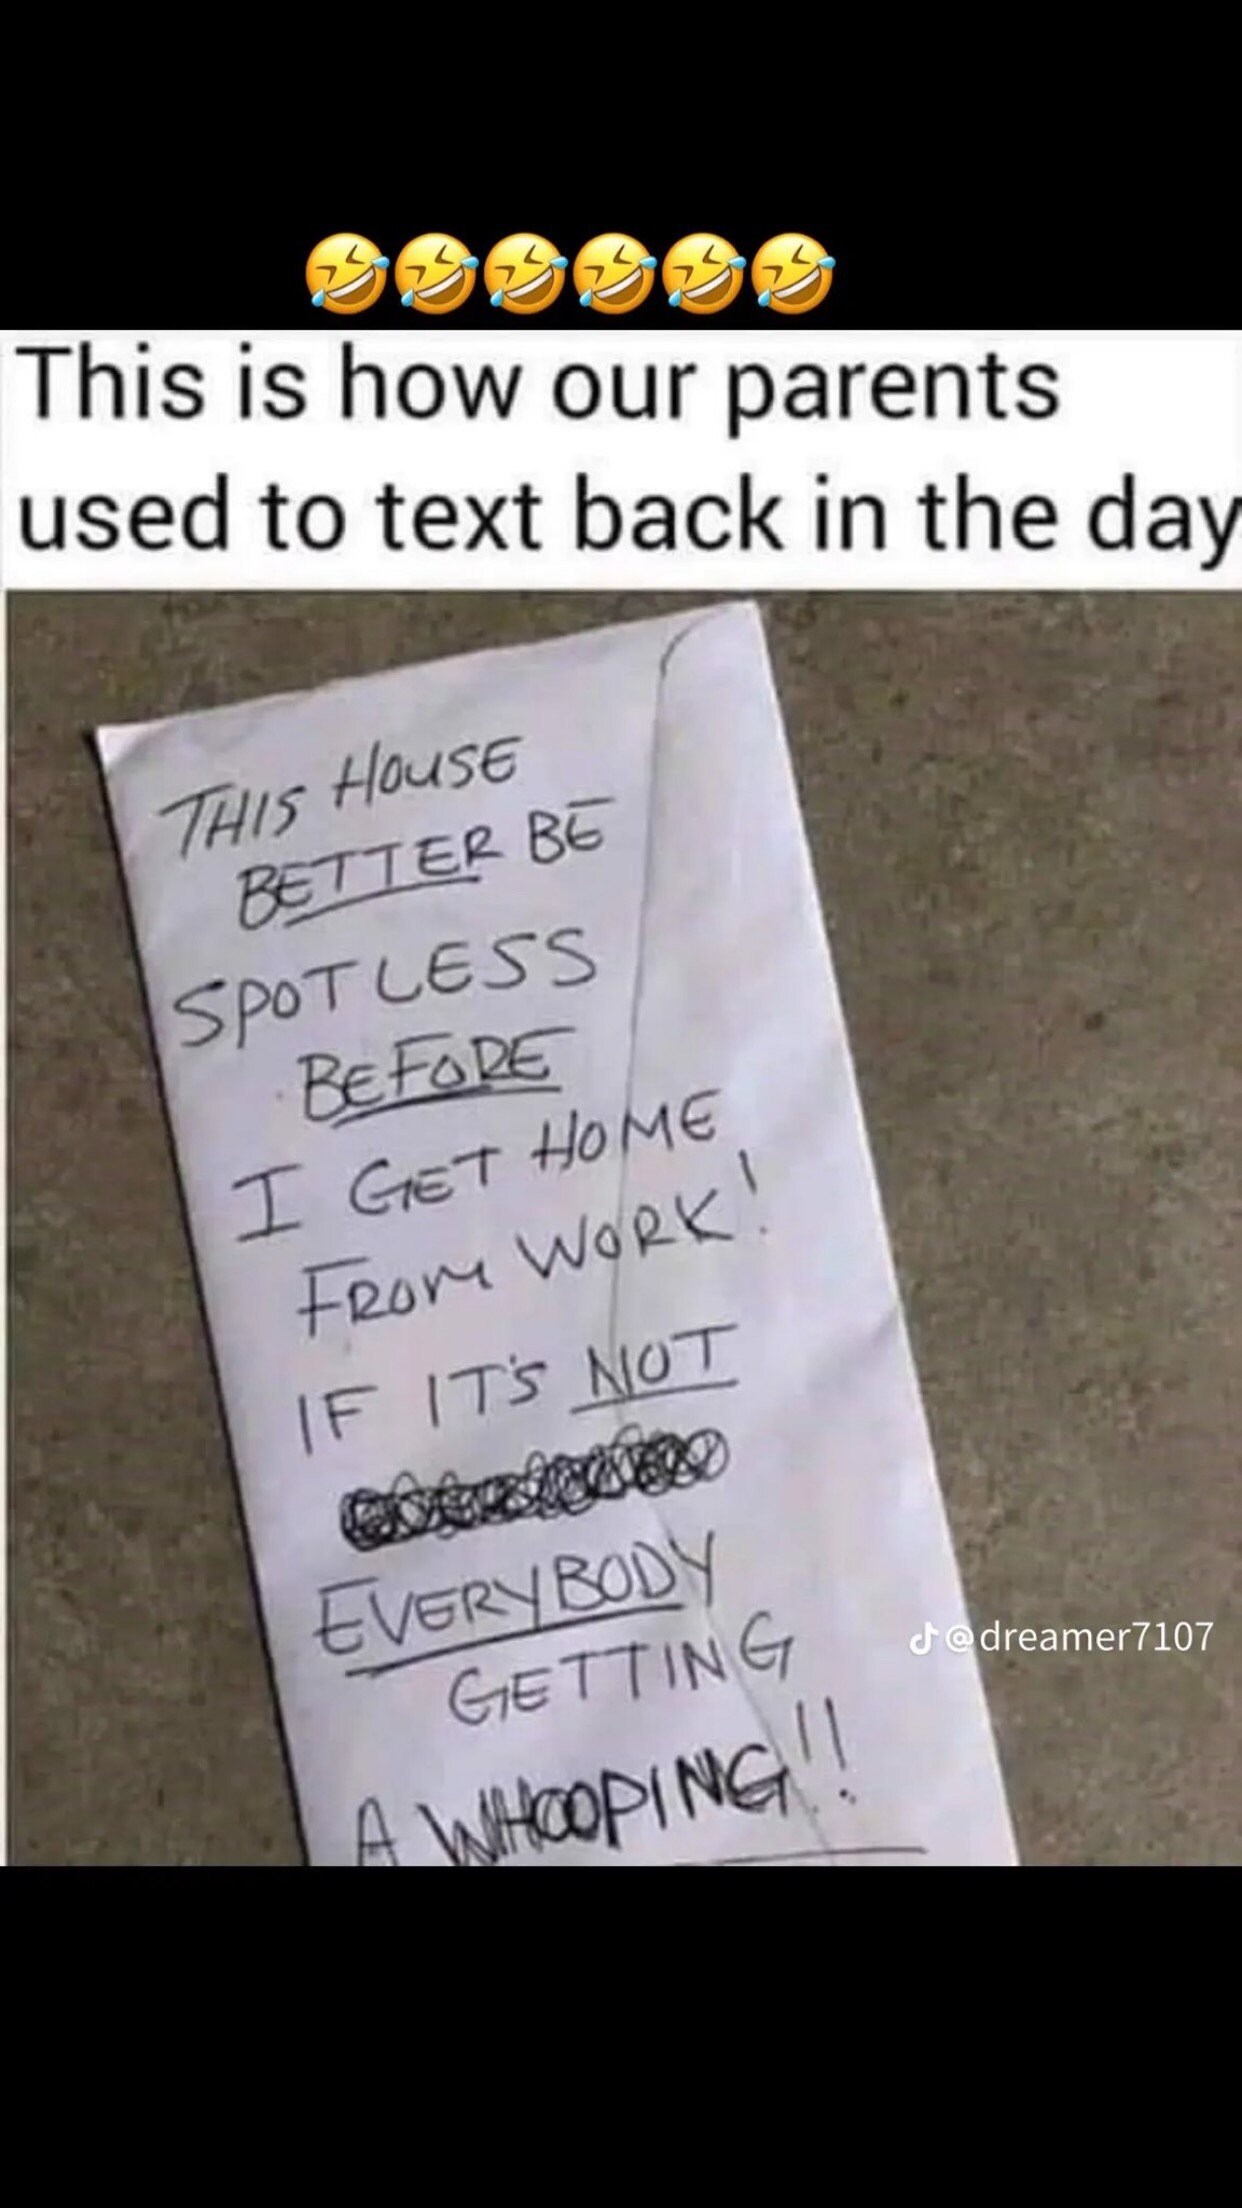 🤣🤣🤣🤣🤣🤣
This is how our parents
used to text back in the day
THIS HOUSE
BETTER BE
SPOTLESS
BEFORE
I GET HOME
FROM WORK!
IF IT'S NOT
EVERYBODY
GETTING
A WHOOPING!!
@dreamer7107